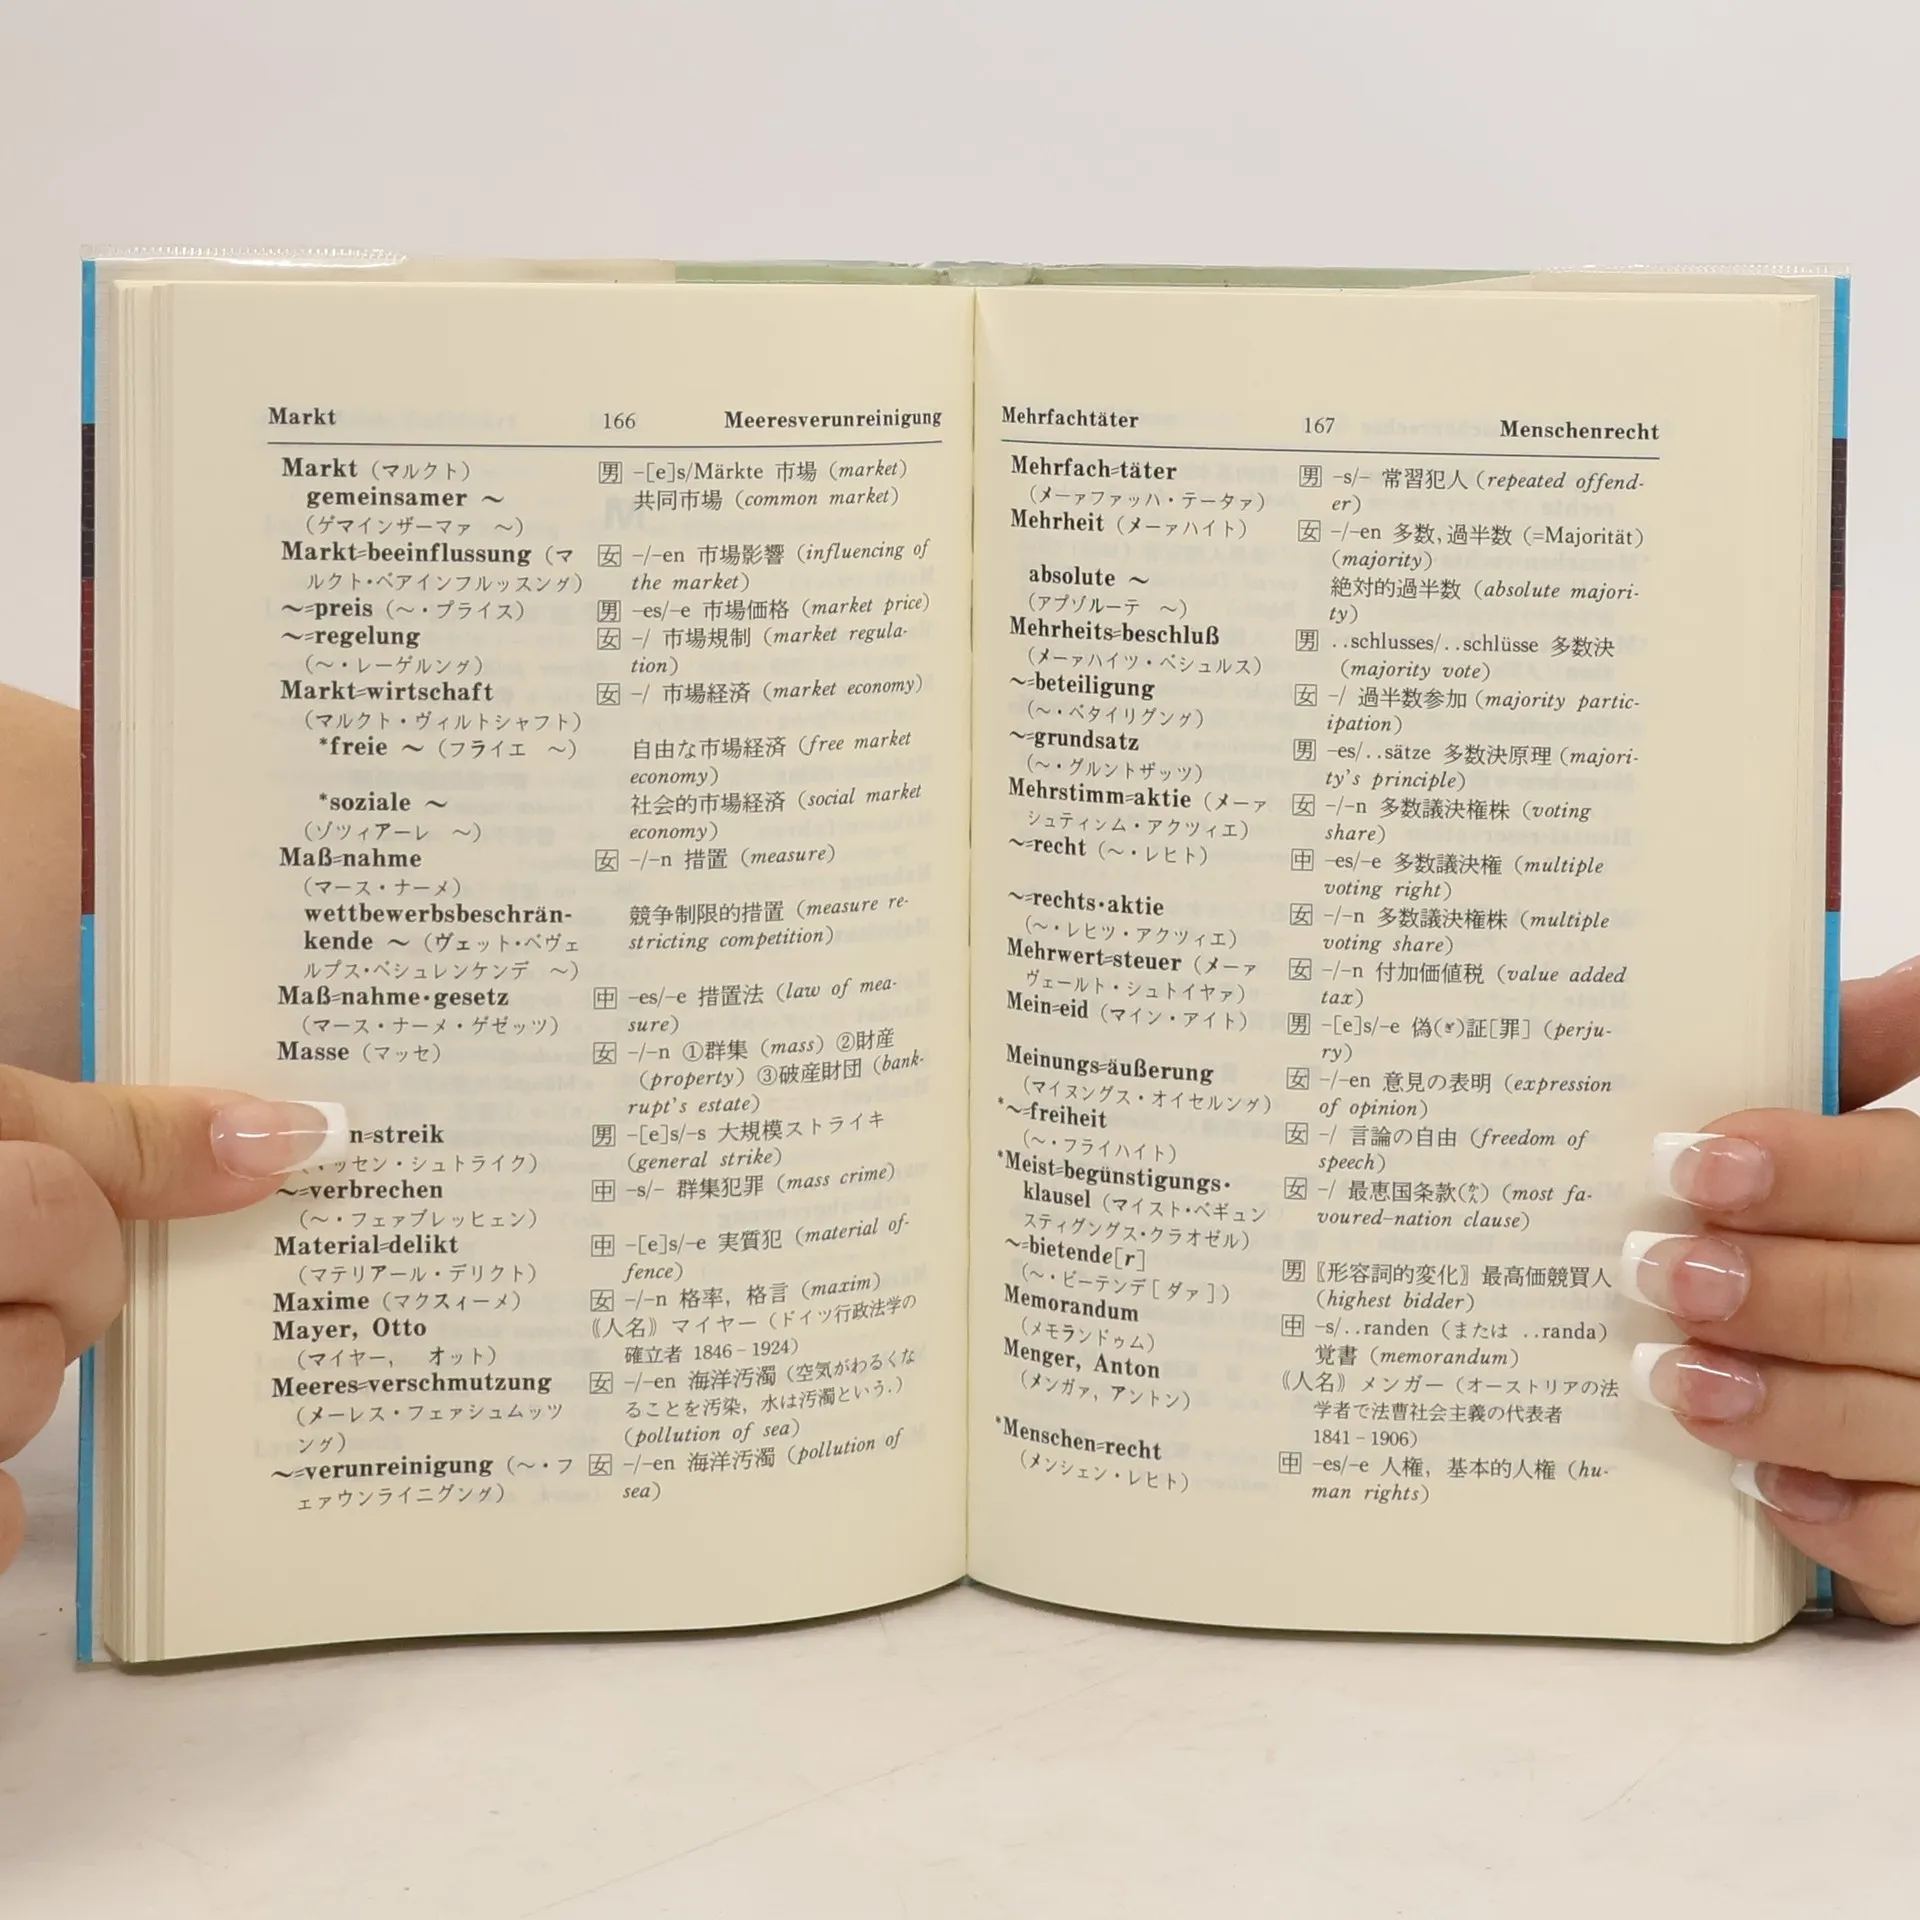 Markt 166 Meeresverunreinigung
Markt (マルクト) 男 -[e]s/Märkte 市場 (market)
gemeinsamer ～ 共同市場 (common market)
(ゲマインザーマァ ～)
Markt=beeinflussung (マ 女 -/-en 市場影響 (influencing of
ルクト・ベアインフルッスング) the market)
～=preis (～・プライス) 男 -es/-e 市場価格 (market price)
～=regelung 女 -/ 市場規制 (market regula-
(～・レーゲルング) tion)
Markt=wirtschaft 女 -/ 市場経済 (market economy)
(マルクト・ヴィルトシャフト)
*freie ～ (フライエ ～) 自由な市場経済 (free market
economy)
*soziale ～ 社会的市場経済 (social market
(ゾツィアーレ ～) economy)
Maß=nahme 女 -/-n 措置 (measure)
(マース・ナーメ)
wettbewerbsbeschrän- 競争制限的措置 (measure re-
kende ～ (ヴェット・ベヴェ stricting competition)
ルプス・ベシュレンケンデ ～)
Maß=nahme・gesetz 中 -es/-e 措置法 (law of mea-
(マース・ナーメ・ゲゼッツ) sure)
Masse (マッセ) 女 -/-n ①群集 (mass) ②財産
(property) ③破産財団 (bank-
rupt's estate)
n=streik 男 -[e]s/-s 大規模ストライキ
ッセン・シュトライク) (general strike)
～=verbrechen 中 -s/- 群集犯罪 (mass crime)
(～・フェァブレッヒェン)
Material=delikt 中 -[e]s/-e 実質犯 (material of-
(マテリアール・デリクト) fence)
Maxime (マクスィーメ) 女 -/-n 格率, 格言 (maxim)
Mayer, Otto 《人名》 マイヤー (ドイツ行政法学の
(マイヤー, オット) 確立者 1846–1924)
Meeres=verschmutzung 女 -/-en 海洋汚濁 (空気がわるくな
(メーレス・フェァシュムッツ ることを汚染, 水は汚濁という.)
ング) (pollution of sea)
～=verunreinigung (～・フ 女 -/-en 海洋汚濁 (pollution of
ェァウンライニグング) sea)
Mehrfachtäter 167 Menschenrecht
Mehrfach=täter 男 -s/- 常習犯人 (repeated offend-
(メーァファッハ・テータァ) er)
Mehrheit (メーァハイト) 女 -/-en 多数, 過半数 (=Majorität)
(majority)
absolute ～ 絶対的過半数 (absolute majori-
(アプゾルーテ ～) ty)
Mehrheits=beschluß 男 ..schlusses/..schlüsse 多数決
(メーァハイツ・ベシュルス) (majority vote)
～=beteiligung 女 -/ 過半数参加 (majority partic-
(～・ベタイリグング) ipation)
～=grundsatz 男 -es/..sätze 多数決原理 (majori-
(～・グルントザッツ) ty's principle)
Mehrstimm=aktie (メーァ 女 -/-n 多数議決権株 (voting
シュティンム・アクツィエ) share)
～=recht (～・レヒト) 中 -es/-e 多数議決権 (multiple
voting right)
～=rechts・aktie 女 -/-n 多数議決権株 (multiple
(～・レヒツ・アクツィエ) voting share)
Mehrwert=steuer (メーァ 女 -/-n 付加価値税 (value added
ヴェールト・シュトイヤァ) tax)
Mein=eid (マイン・アイト) 男 -[e]s/-e 偽(ぎ)証[罪] (perju-
ry)
Meinungs=äußerung 女 -/-en 意見の表明 (expression
(マイヌングス・オイセルング) of opinion)
*～=freiheit 女 -/ 言論の自由 (freedom of
(～・フライハイト) speech)
*Meist=begünstigungs・ 女 -/ 最恵国条款(かん) (most fa-
klausel (マイスト・ベギュン voured-nation clause)
スティグングス・クラオゼル)
～=bietende[r] 男 〘形容詞的変化〙 最高価競買人
(～・ビーテンデ[ダァ]) (highest bidder)
Memorandum 中 -s/..randen (または ..randa)
(メモランドゥム) 覚書 (memorandum)
Menger, Anton 《人名》 メンガー (オーストリアの法
(メンガァ, アントン) 学者で法曹社会主義の代表者
1841–1906)
*Menschen=recht 中 -es/-e 人権, 基本的人権 (hu-
(メンシェン・レヒト) man rights)